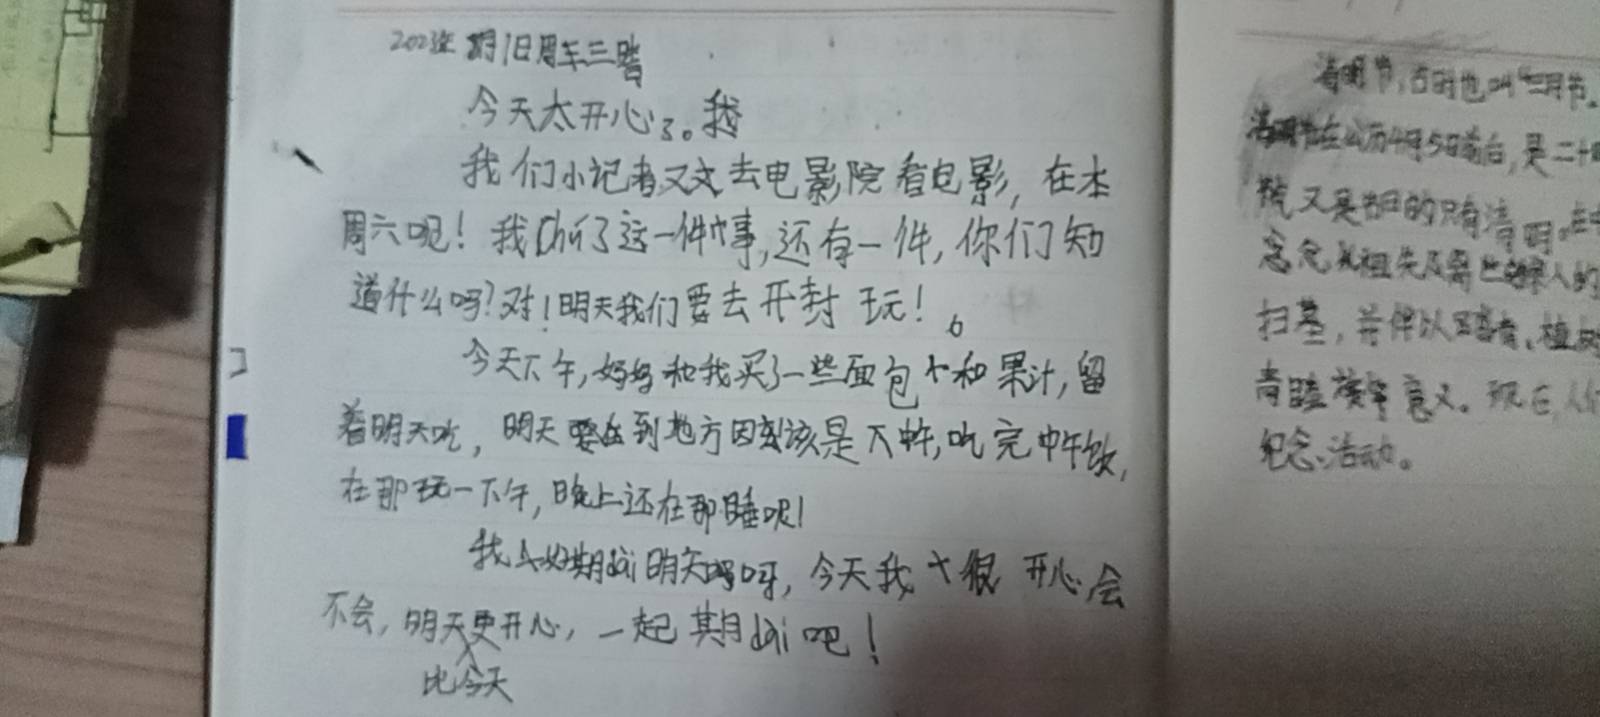 今天太开心了。我
我们小记者又又去电影院看电影,在本
周六呢!我chú了这一件事,还有一件,你们知
道什么吗?对!明天我们要去开封玩!
今天下午,妈妈和我买了一些面包和果汁,留
着明天吃,明天到地方因该是下午,吃完中午饭,
在那玩一下午,晚上还在那睡呢!
我好期dài明天呀,今天我很开心,会
不会,明天更开心,一起期dài吧!
比今天
清明节,古时也叫三月节。
清明节在公历4月5日前后,是二十
又是节日的只有清明。在中
念祖先及离世亲人的
扫墓,并伴以踏青、植树
意义。现在,人们
纪念活动。